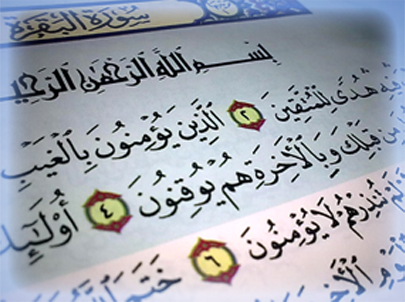 سُورَةُ الْبَقَرَةِ
بِسْمِ اللَّهِ الرَّحْمَٰنِ الرَّحِي
فِيهِ هُدًى لِّلْمُتَّقِينَ ٢ الَّذِينَ يُؤْمِنُونَ بِالْغَيْبِ
مِن قَبْلِكَ وَبِالْآخِرَةِ هُمْ يُوقِنُونَ ٤ أُولَٰئِكَ
تُنذِرْهُمْ لَا يُؤْمِنُونَ ٦ خَتَمَ اللَّهُ